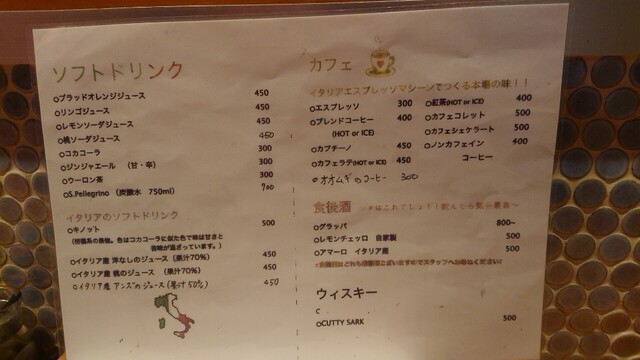 ソフトドリンク
○ブラッドオレンジジュース 450
○リンゴジュース 450
○レモンソーダジュース 450
○桃ソーダジュース 450
○コカコーラ 300
○ジンジャエール （甘・辛） 300
○ウーロン茶 300
○S.Pellegrino （炭酸水 750ml） 700
イタリアのソフトドリンク
○キノット 500
(柑橘系の果物。色はコカコーラに似た色で味は甘さと
苦味が混ざっています。)
○イタリア産 洋なしのジュース （果汁70%） 450
○イタリア産 桃のジュース （果汁70%） 450
○イタリア産 アンズのジュース (果汁50%) 450
カフェ
イタリアエスプレッソマシーンでつくる本場の味！！
○エスプレッソ 300
○ブレンドコーヒー 400
(HOT or ICE)
○カプチーノ 450
○カフェラテ(HOT or ICE) 450
○オオムギのコーヒー 300
○紅茶(HOT or ICE) 400
○カフェコレット 500
○カフェシェケラート 500
○ノンカフェイン 400
コーヒー
食後酒 ～〆はこれでしょ！！飲んだら気分最高～
○グラッパ 800~
○レモンチェッロ 自家製 500
○アマーロ イタリア産 500
ウィスキー
C
○CUTTY SARK 500